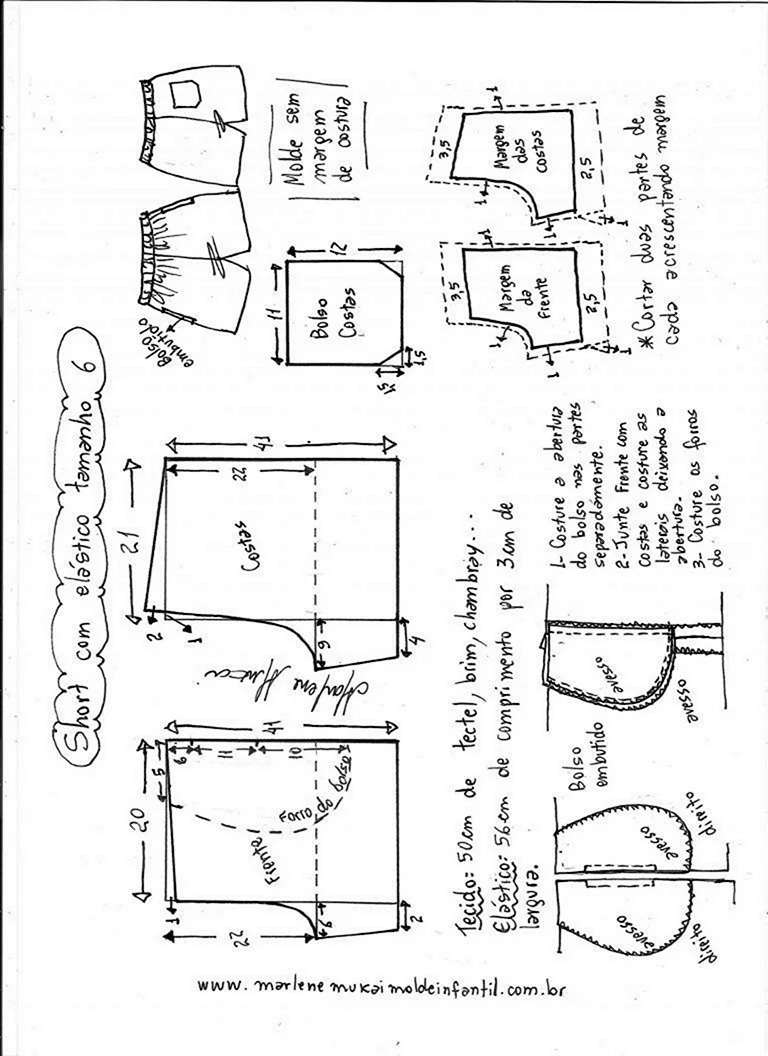 Short com elástico tamanho 6
20
5
41
6
11
10
Forro do bolso
Frente
1
22
6
2
21
41
22
Costas
2
1
9
4
Marlene Mukai
Bolso
embutido
11
12
Bolso
Costas
1,5
1,5
Molde sem
margem
de costura
3,5
1
Margem
da
frente
1
1
2,5
1
3,5
1
Margem
das
costas
1
1
2,5
1
*Cortar duas partes de
cada acrescentando margem
Tecido: 50cm de tectel, brim, chambray...
Elástico: 56cm de comprimento por 3cm de
largura.
Bolso
embutido
avesso
direito
avesso
direito
avesso
avesso
1- Costure a abertura
do bolso nas partes
separadamente.
2- Junte frente com
costas e costure as
laterais deixando a
abertura.
3- Costure os forros
do bolso.
www.marlenemukaimoldeinfantil.com.br